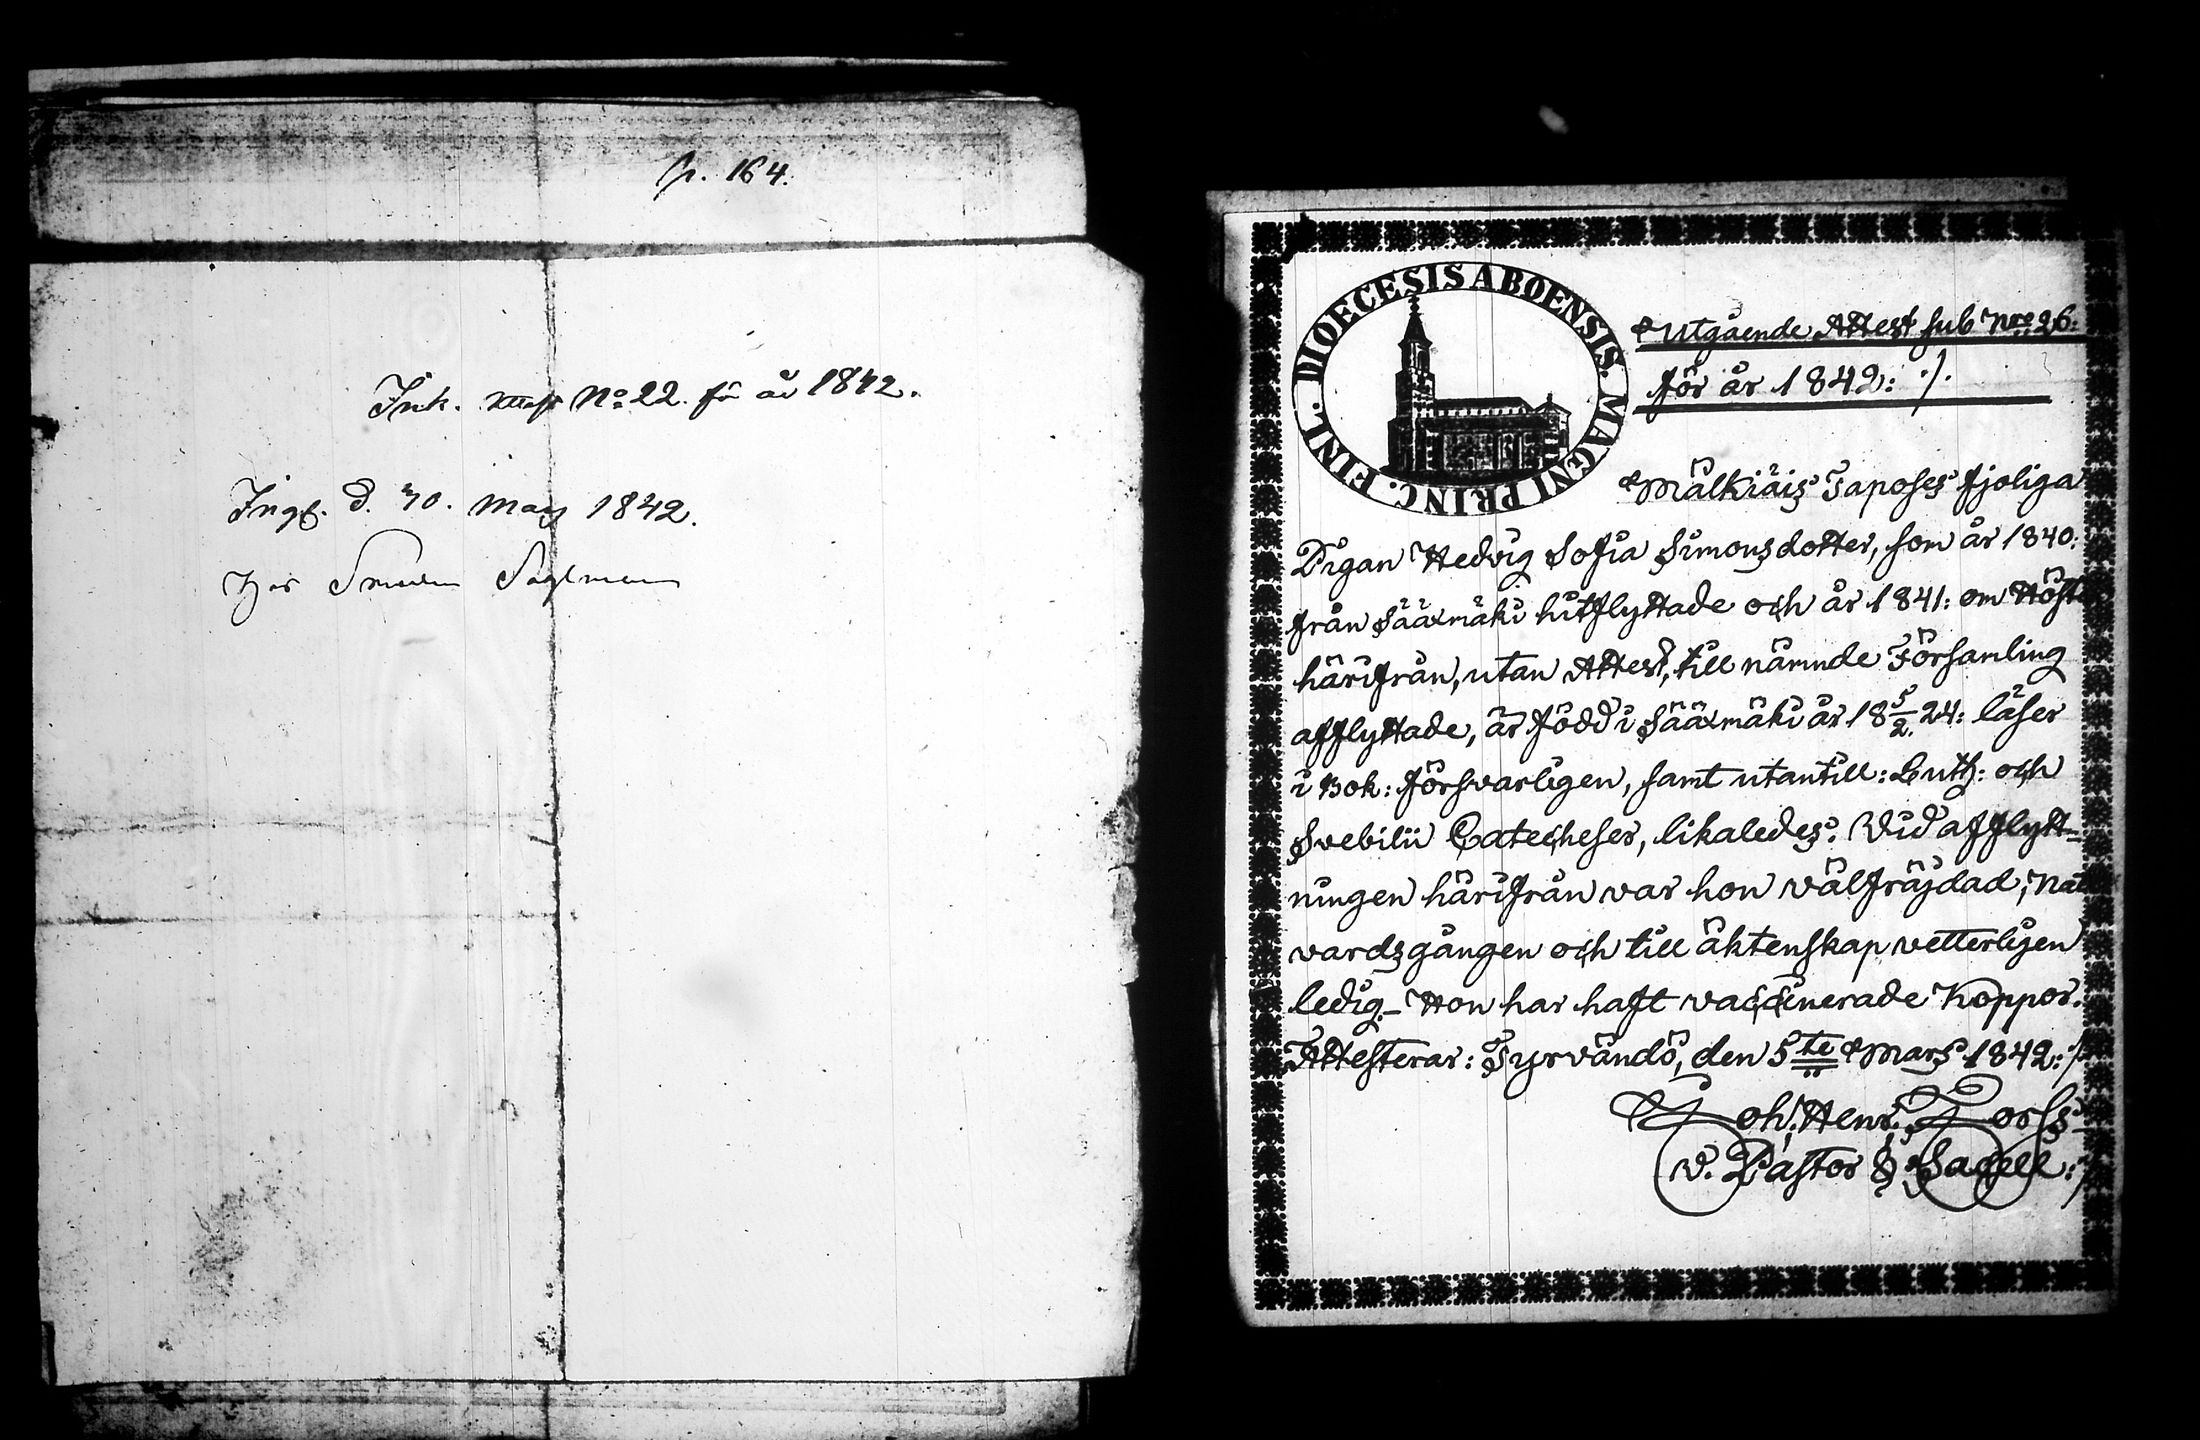 p. 164.
Ink. attest No 22. för år 1842.
Ingf. d. 30. May 1842.
hos Smeden
DIOECESIS ABOENSIS. MAGNI PRINC. FINL.
Utgående Attest sub Nro 26:
för år 1842: ./.
Mälkiäis Taposes fjoliga
Pigan Hedvig Sofia Simonsdotter, som år 1840:
från Sääxmäki hitflyttade och år 1841: om Hösten
härifrån, utan Attest, till nämnde Församling
afflyttade, är född i Sääxmäki år 18 5/2. 24: läser
i Bok: försvarligen, samt utantill: Luth: och
Svebilii Catecheser, likaledes. Vid afflytt-
ningen härifrån var hon välfräjdad, Natt
vardsgången och till äktenskap vetterligen
ledig. – Hon har haft vaccinerade Koppor.
Attesterar: Tyrvändö, den 5te Mars 1842: /.
Joh: Henr: Forss
v. Pastor & Sacell: /.